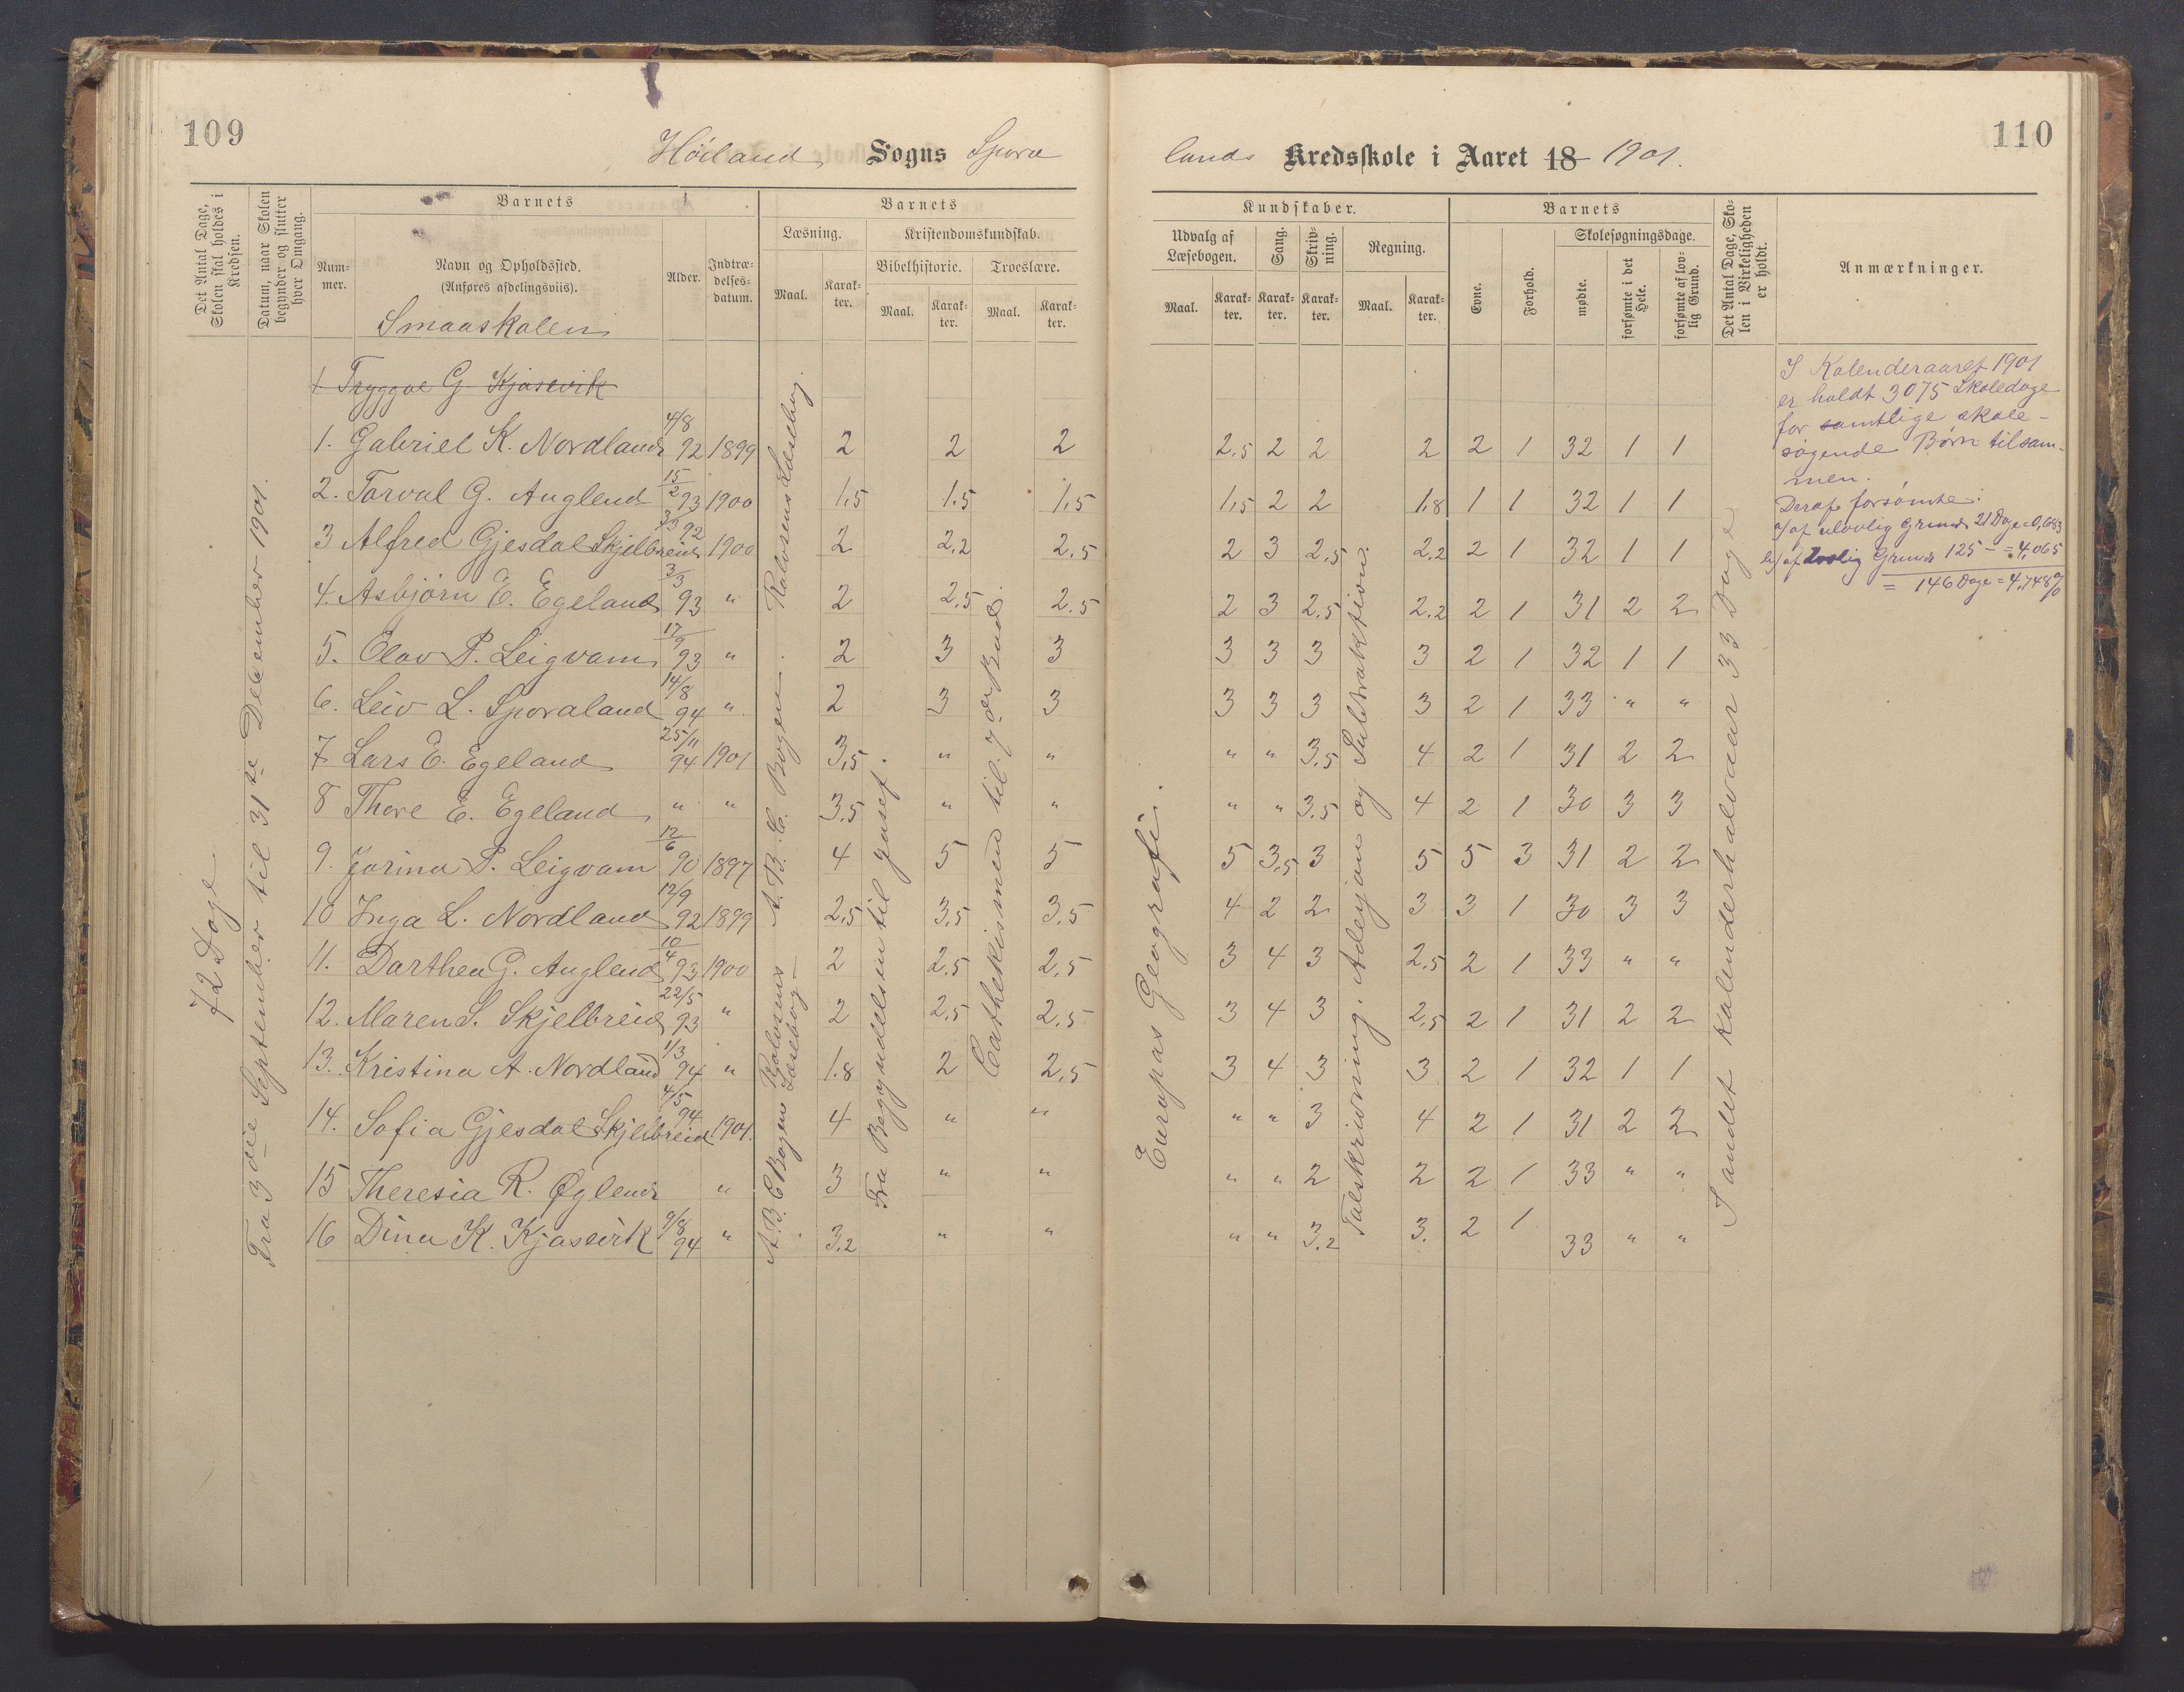 109
110
Höiland Sogns Spora
lands Kredsskole i Aaret 18 1901.
Det Antal Dage, Skolen skal holdes i Kredsen.
Datum, naar Skolen begynder og slutter hver Omgang.
Barnets
Num-
mer.
Navn og Opholdssted.
(Anføres afdelingsviis).
Alder.
Indtræ-
delses-
datum.
Barnets
Læsning.
Maal.
Karak-
ter.
Kristendomskundskab.
Bibelhistorie.
Maal.
Karak-
ter.
Troeslære.
Maal.
Karak-
ter.
Kundskaber.
Udvalg af
Læsebogen.
Maal.
Karak-
ter.
Sang.
Karak-
ter.
Skriv-
ning.
Karak-
ter.
Regning.
Maal.
Karak-
ter.
Barnets
Evne.
Forhold.
Skolesøgningsdage.
mødte.
forsømte i det Hele.
forsømte af lov-
lig Grund.
Det Antal Dage, Sko-
len i Virkeligheden
er holdt.
Anmærkninger.
Smaaskolen
72 Dage
Fra 3die September til 31te December 1901.
1 Tryggve G Kjosevik
1. Gabriel K. Nordland 4/8 92 1899 2 2 2 2.5 2 2 2 2 1 32 1 1
2. Torval G. Auglend 15/2 93 1900 1,5 1.5 1,5 1,5 2 2 1.8 1 1 32 1 1
3 Alfred Gjesdal Skjelbreid 92 1900 2 2.2 2.5 2 3 2.5 2.2 2 1 32 1 1
4. Asbjörn E. Egeland 3/3 93 " 2 2.5 2.5 2 3 2.5 2.2 2 1 31 2 2
5. Olav P. Leigvam 17/9 93 " 2 3 3 3 3 3 3 2 1 32 1 1
6. Leiv L. Sporaland 14/8 94 " 2 3 3 3 3 3 3 2 1 33 " "
7 Lars E. Egeland 25/11 94 1901 3,5 " " " " 3.5 4 2 1 31 2 2
8 Thore E. Egeland " " 3.5 " " " " 3.5 4 2 1 30 3 3
9. Jorina P. Leigvam 12/6 90 1897 4 5 5 5 3.5 3 5 5 3 31 2 2
10 Inga L. Nordland 12/9 92 1899 2,5 3,5 3.5 4 2 2 3 3 1 30 3 3
11. Darthea G. Auglend 10/4 93 1900 2 2.5 2,5 3 4 3 2.5 2 1 33 " "
12. Maren S. Skjelbreid 22/5 93 " 2 2.5 2.5 3 4 3 2.5 2 1 31 2 2
13. Kristina A. Nordland 1/3 94 " 1.8 2 2,5 3 4 3 3 2 1 32 1 1
14. Sofia Gjesdal Skjelbreid 4/5 94 1901. 4 " " " " 3 4 2 1 31 2 2
15 Theresia R. Øglend " 3 " " " " 2 2 2 1 33 " "
16 Dina K. Kjosevik 9/8 94 " 3.2 " " " " 3.2 3. 2 1 33 " "
A. B. C. Bogen. Rolvsens Læsebog.
A. B. C Bogen Rolvsens Læsebog
Fra Begyndelsen til Josef.
Cathekismen til 7de Bud.
Europas Geografi.
Talskrivning. Adisjon og Subtraktion.
I andet Kalenderhalvaar 33 Dage
I Kalenderaaret 1901
er holdt 3075 Skoledage
for samtlige skole-
søgende Børn tilsam-
men.
Deraf forsømte:
a) af ulovlig Grund 21 Dage = 0,683
b) af lovlig Grund 125 - = 4,065
= 146 Dage = 4,748%